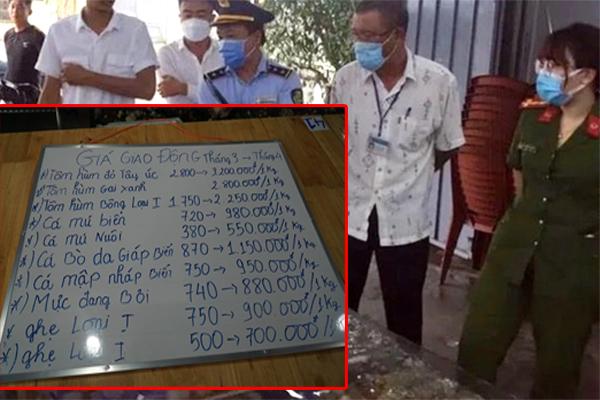 GIÁ GIAO ĐỘNG Tháng 3 → Tháng 4
*) Tôm hùm đỏ Tây úc 2.800 → 3.200.000đ/1Kg
*) Tôm hùm Gai xanh 2.800.000đ/1Kg
*) Tôm hùm Bông Loại I 1.750 → 2.250.000đ/1Kg
*) Cá mú biển 720 → 980.000đ/1Kg
*) Cá mú Nuôi 380 → 550.000đ/1Kg
*) Cá Bò da Giáp Biển 870 → 1.150.000đ/1Kg
*) Cá mập nháp Biển 750 → 950.000đ/Kg
*) Mực đang Bơi 740 → 880.000đ/1Kg
* ghẹ Loại I 750 → 900.000đ/1Kg
*) ghẹ I 500 → 700.000đ/